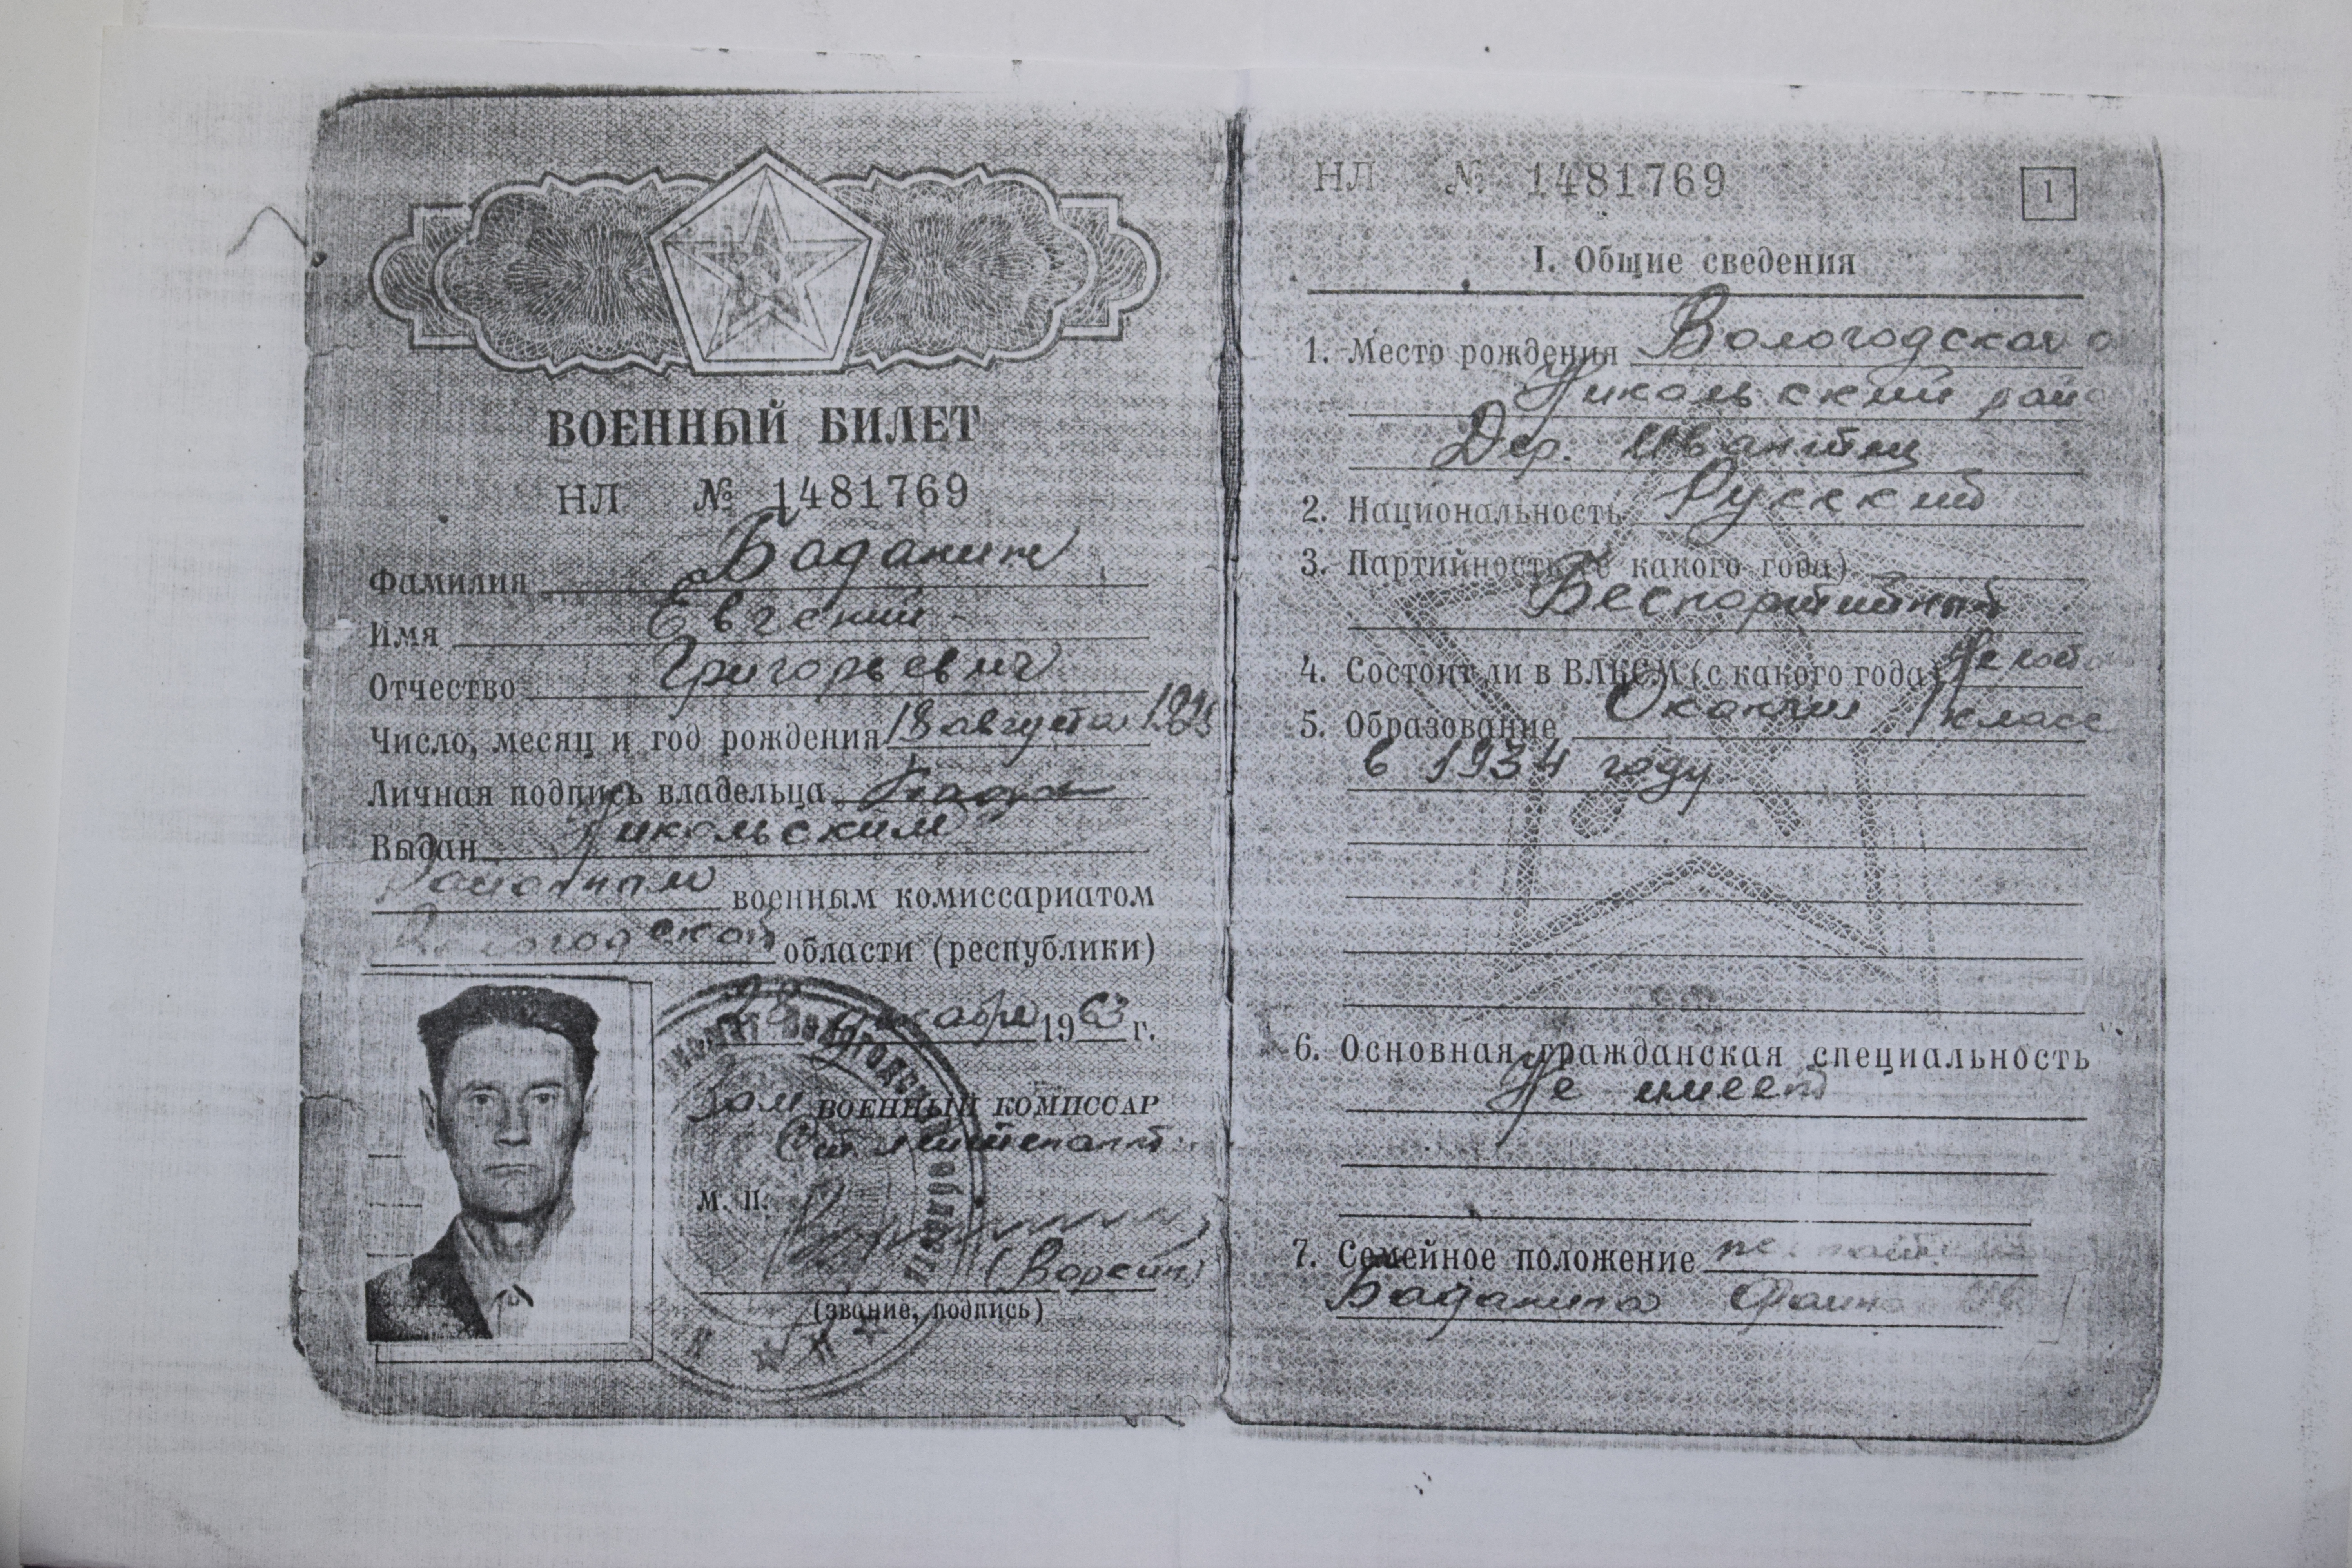 ВОЕННЫЙ БИЛЕТ
НЛ № 1481769
Фамилия Баданин
Имя Евгений
Отчество Григорьевич
Число, месяц и год рождения 18 августа
Личная подпись владельца
Выдан Никольским
Районным военным комиссариатом
Вологодской области (республики)
28 декабря 1963 г.
Зам ВОЕННЫЙ КОМИССАР
Ст. лейтенант
М. П.
(звание, подпись)
НЛ № 1481769
1
I. Общие сведения
1. Место рождения Вологодская о
Никольский райо
Дер.
2. Национальность Русский
3. Партийность (с какого года)
Беспартийный
4. Состоит ли в ВЛКСМ (с какого года) Не
5. Образование Окончил класс
в 1934 году
6. Основная гражданская специальность
Не имеет
7. Семейное положение
Баданина Фаина